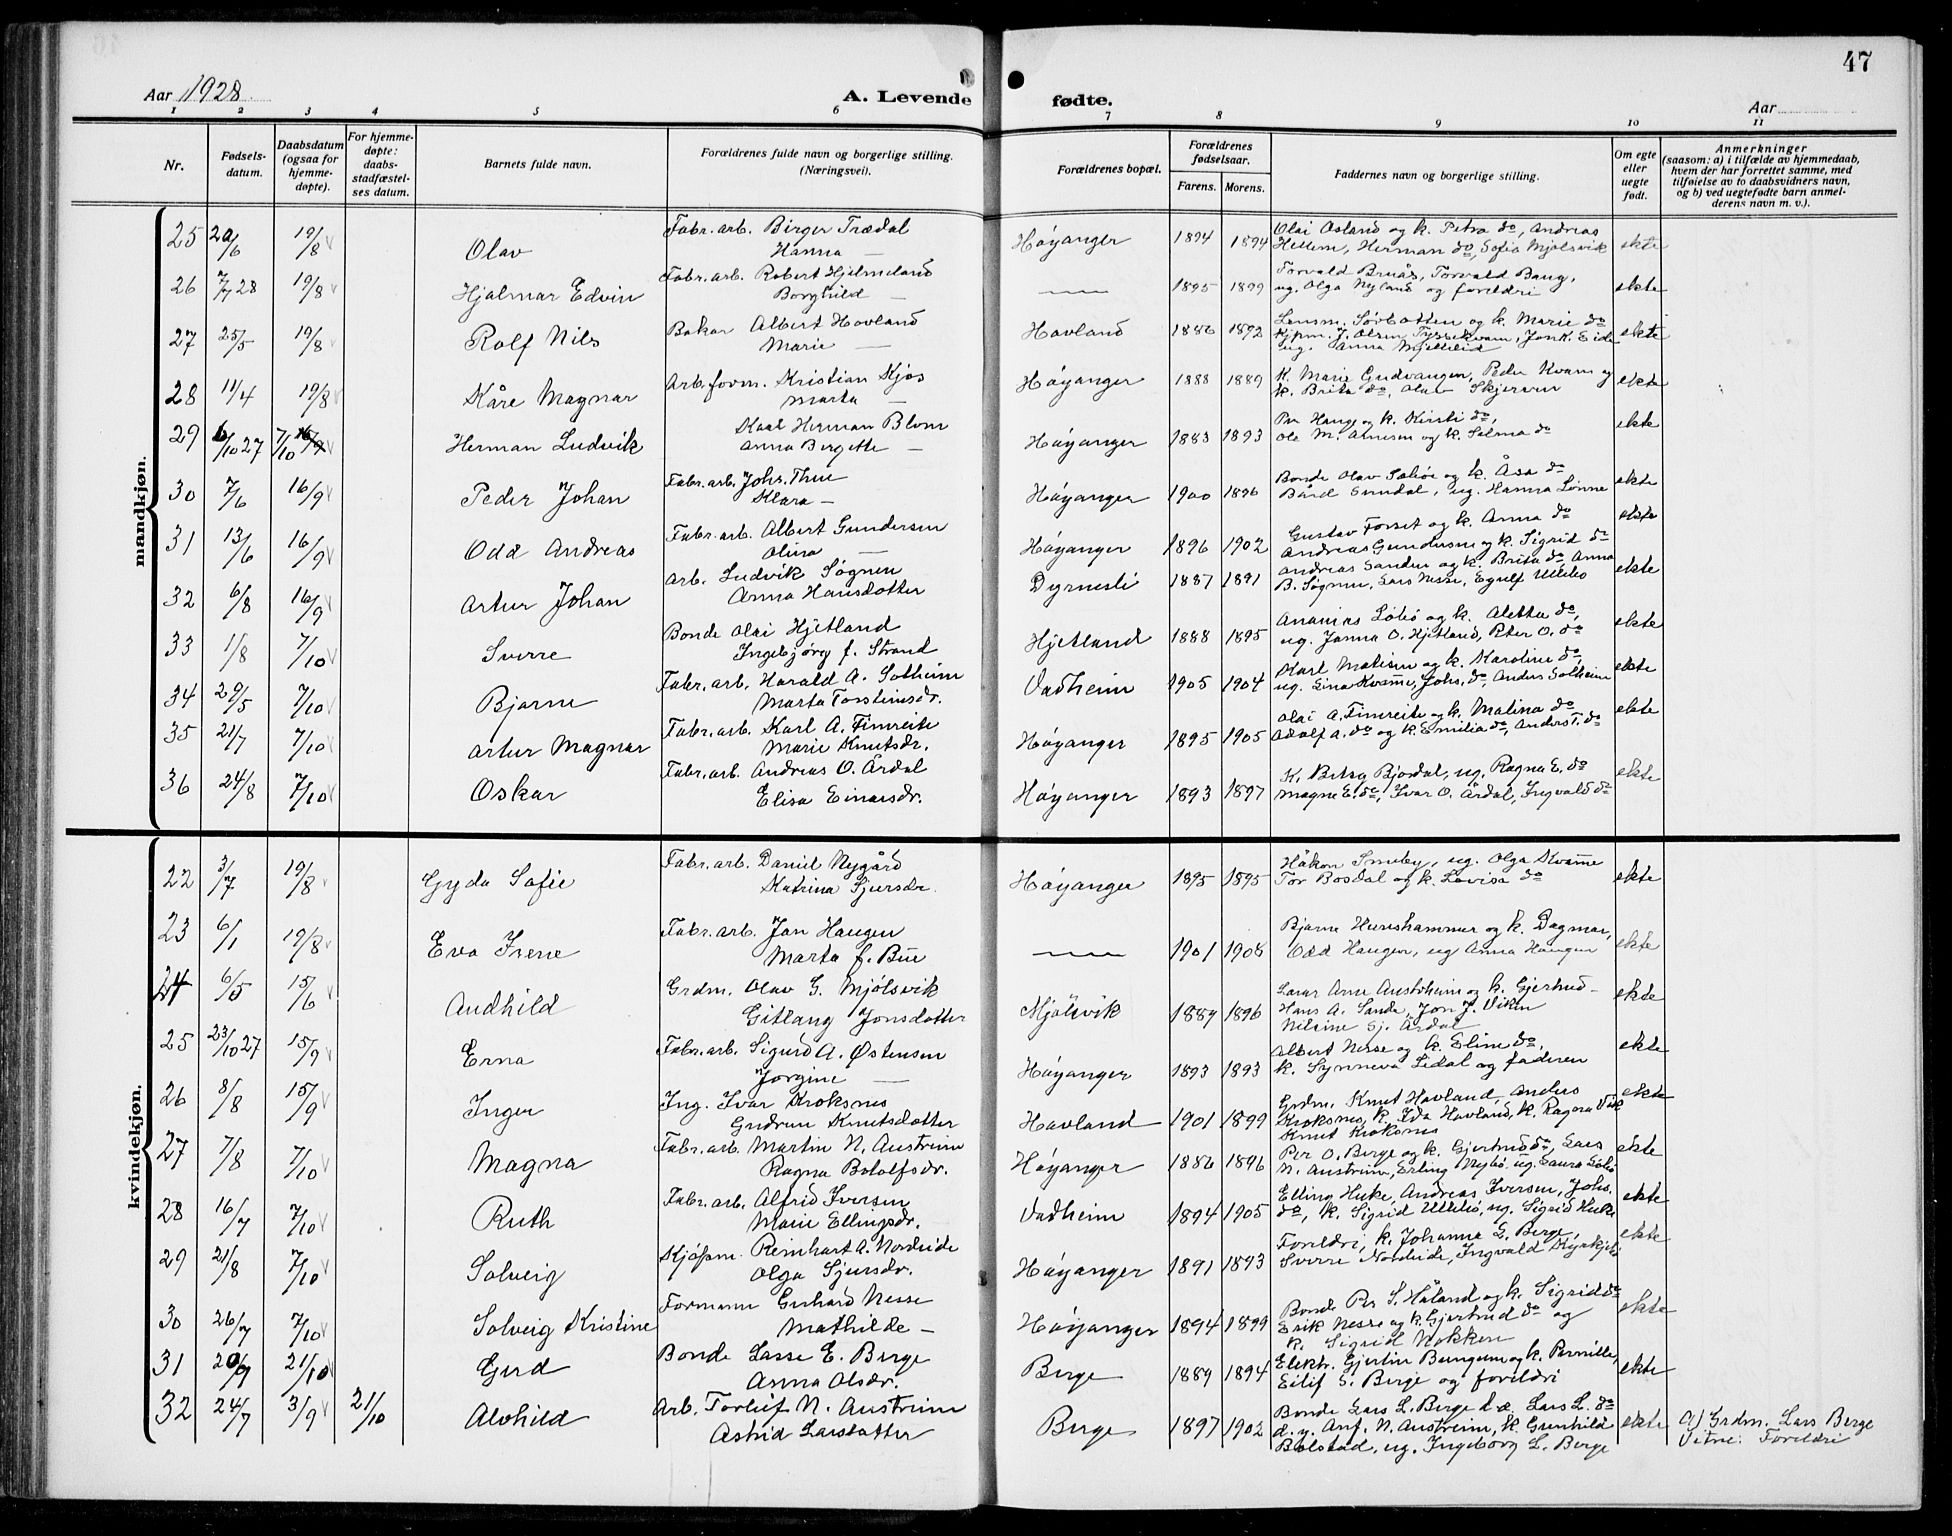 47
Aar 1928
A. Levende fødte.
Aar
1 2 3 4 5 6 7 8 9 10 11
Nr.
Fødsels-
datum.
Daabsdatum
(ogsaa for
hjemme-
døpte).
For hjemme-
døpte:
daabs-
stadfæstel-
ses datum.
Barnets fulde navn.
Forældrenes fulde navn og borgerlige stilling.
(Næringsvei).
Forældrenes bopæl.
Forældrenes
fødselsaar.
Farens. Morens.
Faddernes navn og borgerlige stilling.
Om egte
eller
uegte
født.
Anmerkninger
(saasom: a) i tilfælde av hjemmedaab,
hvem der har forrettet samme, med
tilføielse av to daabsvidners navn,
og b) ved uegtefødte barn anmel-
derens navn m. v.).
mandkjøn.
25 20/6 19/8 Olav Fabr. arb. Birger Trædal Høyanger 1894 1894 Olai Osland og k. Petra do, Andreas ekte
Hanna — Hellem, Herman do, Sofia Mjølsvik
26 7/7 28 19/8 Hjalmar Edvin Fabr. arb. Robert Hjelmeland — 1895 1899 Torvald Bruås, Torvald Baug, ekte
Borghild — ug. Olga Nyland og foreldri
27 25/5 19/8 Rolf Nils Bakar Albert Hovland Hovland 1886 1892 Lensm. Sørbotten og k. Marie do ekte
Marie — Kjpm. J. Olsen Tyssekvam, Jonk. Eide
ug. Anna Mjelleid
28 11/4 19/8 Kåre Magnar Arb. form. Kristian Kjøs Høyanger 1888 1889 K. Marie Gudvangen, Peder Kvam og ekte
Marta — k. Brita do, Olav Skjerven
29 6/10 27 7/10 Herman Ludvik Karl Herman Blom Høyanger 1883 1893 Per Hauge og k. Kirsti do, ekte
Anna Bergette — Ole M. Arnesen og k. Selma do
30 7/6 16/9 Peder Johan Fabr. arb. Johs. Thue Høyanger 1900 1896 Bonde Olav Solsøi og k. Åsa do ekte
Klara — Bård Sundal, ug. Hanna Lønne
31 13/6 16/9 Odd Andreas Fabr. arb. Albert Gundersen Høyanger 1896 1902 Gustav Forset og k. Anna do ekte
Olina — Andreas Gundersen og k. Sigrid do
32 6/8 16/9 Artur Johan Arb. Ludvik Søgnen Dyrnesli 1887 1891 Andreas Sanden og k. Brita do, Anna ekte
Anna Hansdotter B. Søgnen, Lars Nesse, Eyulf Ullebø
33 1/8 7/10 Sverre Bonde Olai Hjetland Hjetland 1888 1895 Ananias Løbø og k. Aletta do, ekte
Ingebjørg f. Strand ug. Janna O. Hjetland, Peter O. do
34 29/5 7/10 Bjarne Fabr. arb. Harald A. Solheim Vadheim 1905 1904 Karl Matisen og k. Karoline do, ekte
Marta Torsteinsdr. ug. Gina Kvamme, Johs. do, Anders Solheim
35 21/7 7/10 Artur Magnar Fabr. arb. Karl A. Finnreite Høyanger 1895 1905 Olai A. Finnreite og k. Malina do ekte
Marie Knutsdr. Adolf A. do og k. Emilia do, Anders T. do
36 24/8 7/10 Oskar Fabr. arb. Andreas O. Årdal Høyanger 1893 1897 K. Betsy Bjordal, ug. Ragna E. do ekte
Elisa Einarsdr. Magne E. do, Ivar O. Årdal, Ingvald do
kvindekjøn.
22 3/7 19/8 Gyda Sofie Fabr. arb. Daniel Nygård Høyanger 1895 1895 Håkon Smeby, ug. Olga Kvamme ekte
Katrina Sjursdr. Tor Bosdal og k. Lovisa do
23 6/1 19/8 Eva Irene Fabr. arb. Jon Haugen — 1901 1908 Bjarne Huneshammer og k. Dagmar, ekte
Marta f. Bue Odd Haugen, ug Anna Haugen
24 6/5 15/6 Audhild Grdm. Olav G. Mjølsvik Mjølsvik 1889 1896 Lærar Arne Austrheim og k. Gjertrud — ekte
Gitlaug Jonsdotter Hans A. Sande, Jon J. Viken
Nilsine Sj. Årdal
25 23/10 27 15/9 Erna Fabr. arb. Sigurd A. Østensen Høyanger 1893 1893 Albert Nesse og k. Eline do, ekte
Jorgine — k. Synneva Lidal og faderen
26 8/8 15/9 Inger Ing. Ivar Kroksnes Hovland 1901 1899 Grdm. Knut Hovland, Anders ekte
Gudrun Knutsdotter Kroksnes, k. Ida Hovland, k. Ragna Vik
Knut Kroksnes
27 7/8 7/10 Magna Fabr. arb. Martin N. Austreim Høyanger 1886 1896 Per O. Berge og k. Gjertrud do, Lars ekte
Ragna Botolfsdr. N. Austreim, Erling Nybø, ug. Laura Løbø
28 16/7 7/10 Ruth Fabr. arb. Alfrid Iversen Vadheim 1894 1905 Elling Huke, Andreas Iversen, Johs. ekte
Marie Ellingsdr. do, k. Sigrid Ullebø, ug. Sigrid Huke
29 21/8 7/10 Solveig Kjøpm. Reinhart A. Nordeide Høyanger 1891 1893 Foreldri, k. Johanne G. Berge, ekte
Olga Sjursdr. Sverre Nordeide, Ingvald Kyrkjebø
30 26/7 7/10 Solveig Kristine Formann Gerhard Nesse Høyanger 1894 1899 Bonde Per S. Håland og k. Sigrid do ekte
Mathilde — Erik Nesse og k. Gjertrud do og
k. Sigrid Nokken
31 20/9 21/10 Gerd Bonde Lasse E. Berge Berge 1889 1894 Elektr. Gjertin Bungum og k. Pernille, ekte
Anna Olsdr. Eilif S. Berge og foreldri
32 24/7 3/9 21/10 Alvhild Arb. Torleif N. Austreim Berge 1897 1902 Bonde Lars L. Berge d. æ. Lars L. do ekte a) Grdm. Lars Berge
Astrid Larsdotter d. y. Anf. N. Austreim, k. Gunhild Vitne: Foreldri
Bolstad, ug. Ingeborg L. Berge